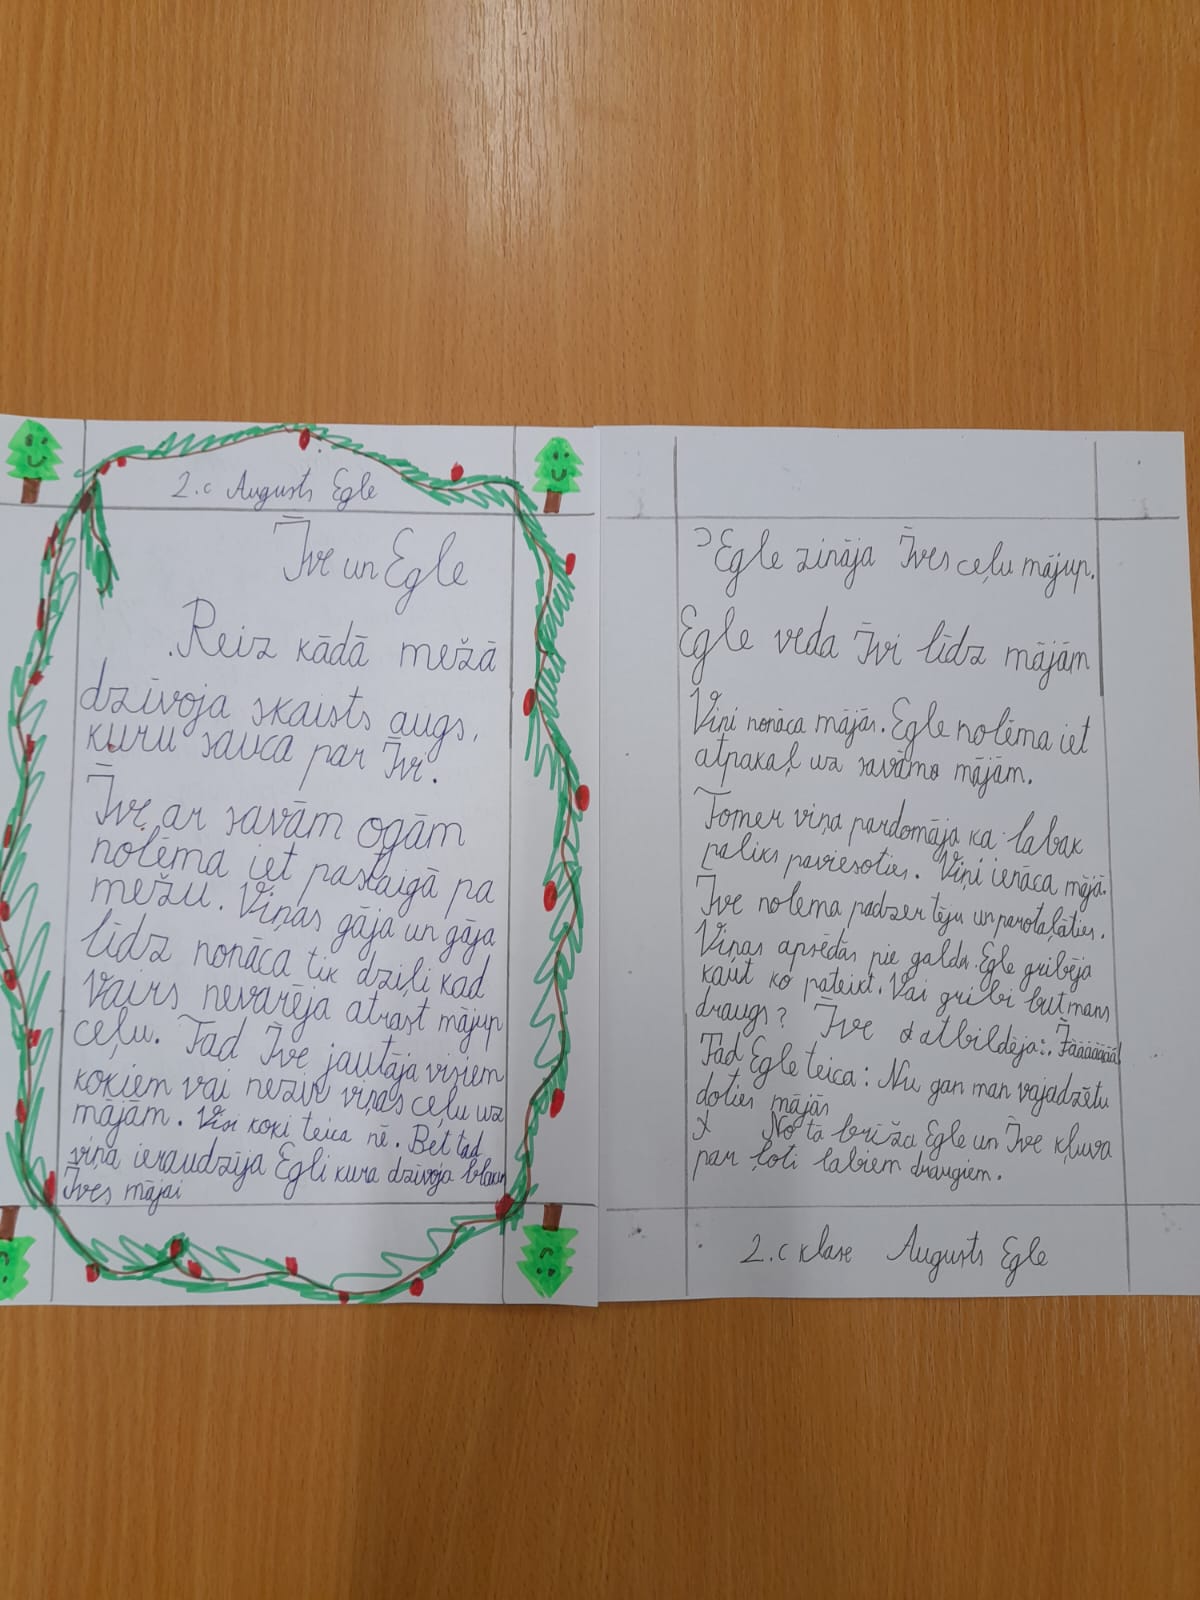 2.c Augusts Egle
Īve un Egle
Reiz kādā mežā
dzīvoja skaists augs,
kuru sauca par Īvi.
Īve ar savām ogām
nolēma iet pastaigā pa
mežu. Viņas gāja un gāja
līdz nonāca tik dziļi kad
vairs nevarēja atrast mājup
ceļu. Tad Īve jautāja visiem
kokiem vai nezin viņas ceļu uz
mājām. Visi koki teica nē. Bet tad
viņa ieraudzīja Egli kura dzīvoja blakus
Īves mājai
Egle zināja Īves ceļu mājup.
Egle veda Īvi līdz mājām
Viņi nonāca mājās. Egle nolēma iet
atpakaļ uz savām mājām.
Tomer viņa pardomāja ka labak
paliks paviesoties. Viņi ienāca mājā.
Īve nolema padzer tēju un parotaļāties.
Viņas apsēdās pie galda. Egle gribēja
kaut ko pateikt. Vai gribi but mans
draugs? Īve atbildēja: Jāāāāāāā!
Tad Egle teica: Nu gan man vajadzētu
doties mājās
No tā brīža Egle un Īve kļuva
par ļoti labiem draugiem.
2.c klase Augusts Egle